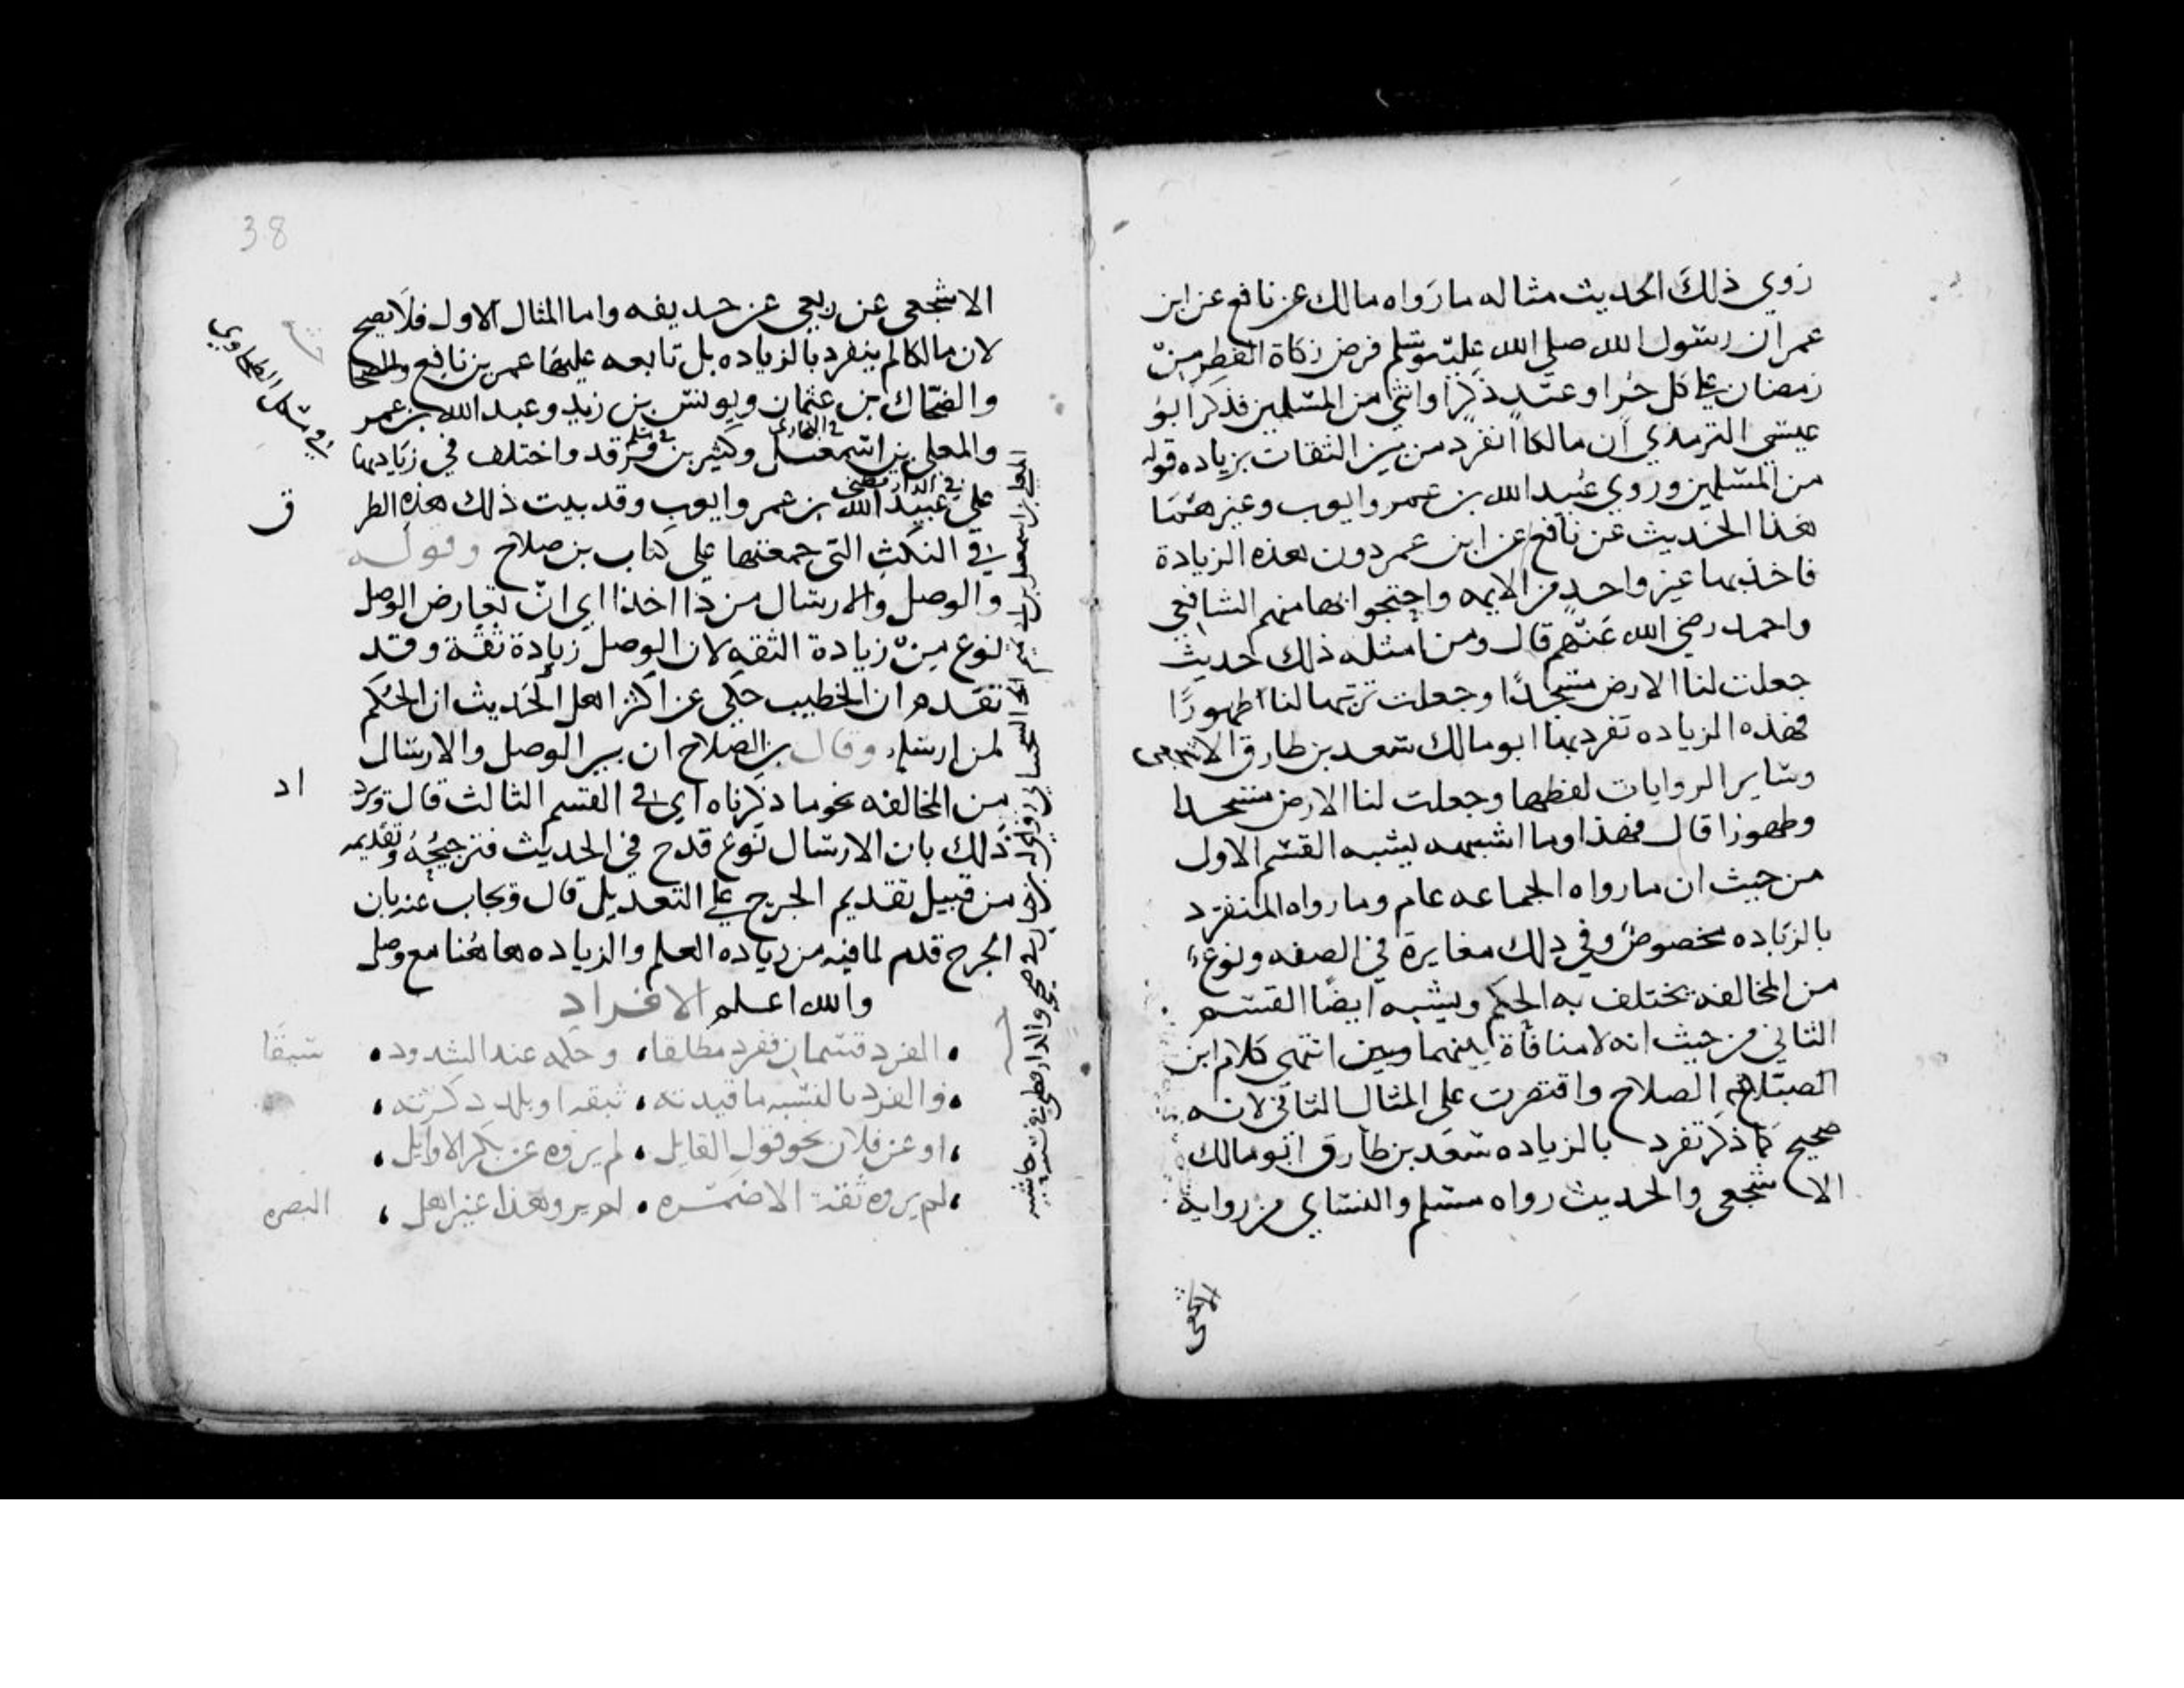 روي ذلك الحديث مثاله ما رواه مالك عن نافع عن ابن
عمر ان رسول الله صلى الله عليه وسلم فرض زكاة الفطر من
رمضان على كل حر او عبد ذكرا وانثى من المسلمين فذكر ابو
عيسى الترمذي ان مالكا انفرد من بين الثقات بزياده قوله
من المسلمين وروي عبيد الله بن عمر وايوب وغيرهما
هذا الحديث عن نافع عن ابن عمر دون هذه الزيادة
فاخذ بها غير واحد من الايمه واحتجوا بها منهم الشافعي
واحمد رضي الله عنهم قال ومن امثله ذلك حديث
جعلت لنا الارض مسجدا وجعلت تربتها لنا طهورا
فهذه الزياده تفرد بها ابو مالك سعد بن طارق الاشجعي
وساير الروايات لفظها وجعلت لنا الارض مسجدا
وطهورا قال فهذا وما اشبهه يشبه القسم الاول
من حيث ان ما رواه الجماعه عام وما رواه المنفرد
بالزياده مخصوص وفي ذلك مغايرة في الصفه ونوع
من المخالفه يختلف به الحكم ويشبه ايضا القسم
الثاني من حيث انه لا منافاة بينهما وبين انتهى كلام ابن
الصلاح واقتصرت على المثال الثاني لانه
صحيح كما ذكر تفرد بالزياده سعد بن طارق ابو مالك
الاشجعي والحديث رواه مسلم والنساي من رواية
الاشجعي
38
الاشجعي عن ربعي عن حذيفه واما المثال الاول فلا يصح
لان مالكا لم ينفرد بالزياده بل تابعه عليها عمر بن نافع
والضحاك ابن عثمان ويونس بن زيد وعبد الله بن عمر
والمعلى بن اسمعيل وكثير بن فرقد واختلف في زيادتها
على عبيد الله بن عمر وايوب وقد بينت ذلك هذه الطر
ق
في النكت التي جمعتها على كتاب بن صلاح وقوله
والوصل والارسال من ذا اخذا اي ان تعارض الوصل
نوع من زيادة الثقه لان الوصل زيادة ثقة وقد
تقدم ان الخطيب حكى عن اكثر اهل الحديث ان الحكم
لمن ارسل وقال بن الصلاح ان بين الوصل والارسال
من المخالفه نحو ما ذكرناه اي في القسم الثالث قال ويزد
اد
ذلك بان الارسال نوع قدح في الحديث فترجيحه وتقديمه
من قبيل تقديم الجرح على التعديل قال ويجاب عنه بان
الجرح قدم لما فيه من زياده العلم والزياده هاهنا مع وصل
والله اعلم الافراد
الفرد قسمان ففرد مطلقا، وحكمه عند الشذوذ سبقا
والفرد بالنسبه ما قيدته، بثقه او بلد ذكرته،
او عن فلان نحو قول القايل، لم يروه عن بكر الا وايل،
لم يروه ثقة الا ضمره، لم يرو هذا غير اهل، البصره
في مشكل الطحاوي
في البخاري
في مسلم
في الدارقطني